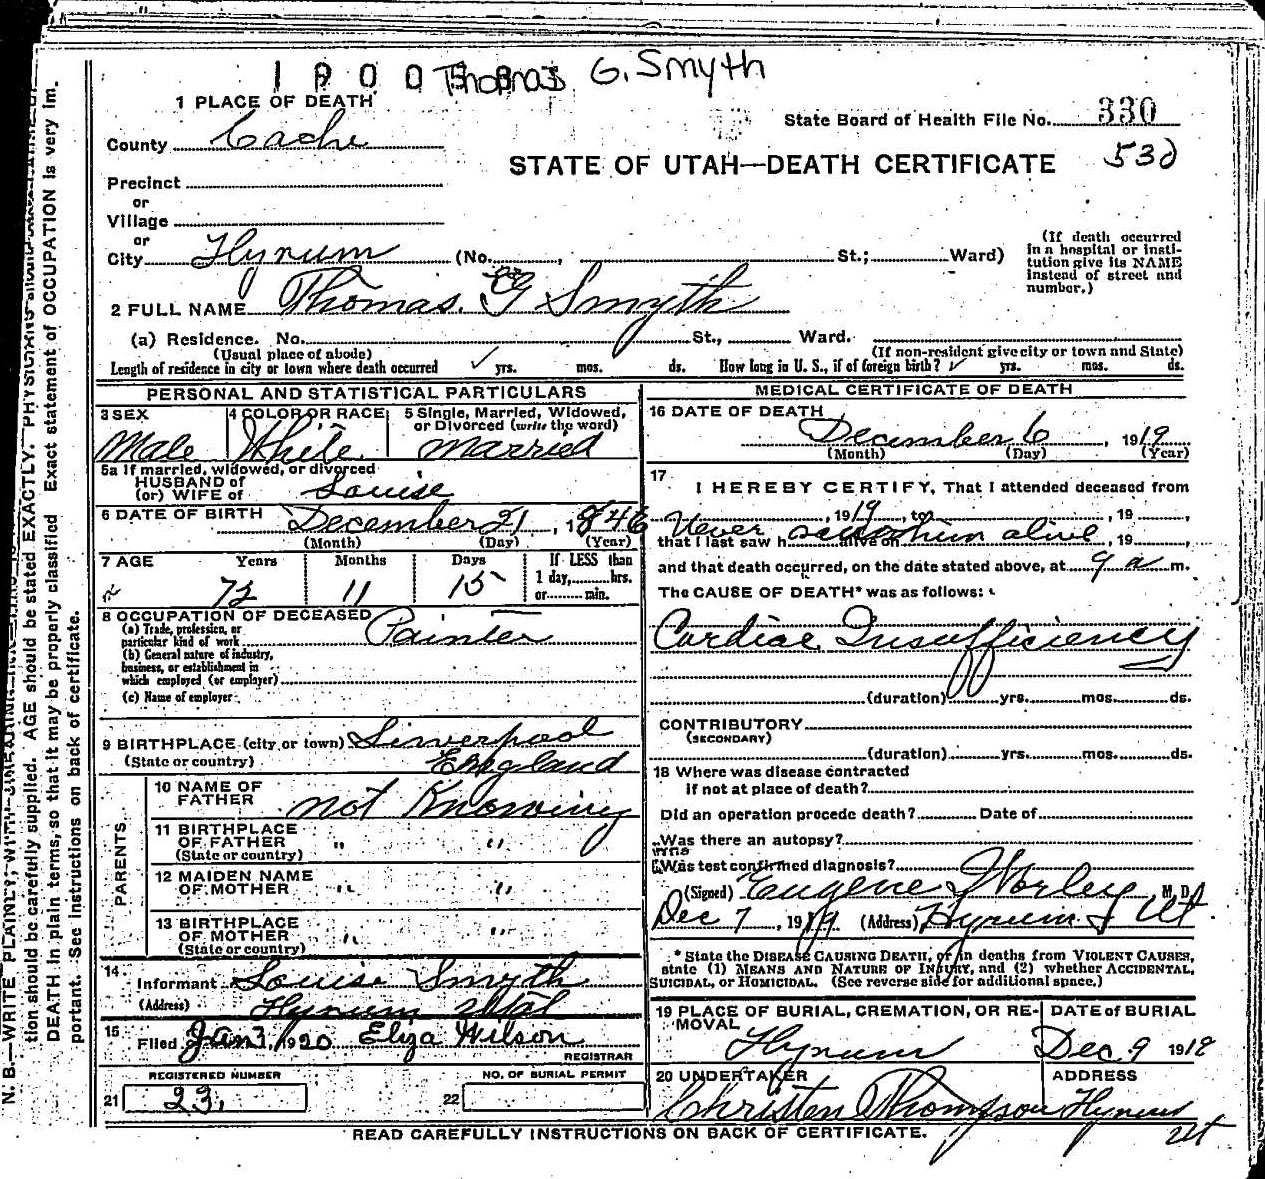 Thomas G. Smyth
1 PLACE OF DEATH
State Board of Health File No. 330
County Cache
STATE OF UTAH—DEATH CERTIFICATE 530
Precinct
or
Village
or
City Hyrum (No. , St.; Ward)
(If death occurred in a hospital or institution give its NAME instead of street and number.)
2 FULL NAME Thomas. G Smyth
(a) Residence. No. St., Ward.
(Usual place of abode) (If non-resident give city or town and State)
Length of residence in city or town where death occurred ✓ yrs. mos. ds. How long in U. S., if of foreign birth? ✓ yrs. mos. ds.
PERSONAL AND STATISTICAL PARTICULARS
3 SEX 4 COLOR OR RACE 5 Single, Married, Widowed, or Divorced (write the word)
Male White Married
5a If married, widowed, or divorced
HUSBAND of
(or) WIFE of Louise
6 DATE OF BIRTH December 21, 1846
(Month) (Day) (Year)
7 AGE Years Months Days If LESS than
1 day, hrs.
or min.
72 11 15
8 OCCUPATION OF DECEASED
(a) Trade, profession, or
particular kind of work Painter
(b) General nature of industry,
business, or establishment in
which employed (or employer)
(c) Name of employer
9 BIRTHPLACE (city or town) Liverpool
(State or country) England
PARENTS
10 NAME OF
FATHER not Knowing
11 BIRTHPLACE
OF FATHER " "
(State or country)
12 MAIDEN NAME
OF MOTHER " "
13 BIRTHPLACE
OF MOTHER " "
(State or country)
14
Informant Louise Smyth
(Address) Hyrum Utah
15
Filed Jan 3, 1920 Eliza Wilson
REGISTRAR
REGISTERED NUMBER NO. OF BURIAL PERMIT
21 23. 22
MEDICAL CERTIFICATE OF DEATH
16 DATE OF DEATH
December 6, 1919
(Month) (Day) (Year)
17
I HEREBY CERTIFY, That I attended deceased from
, 1919, to , 19 ,
Never seen him alive
that I last saw h alive on , 19 ,
and that death occurred, on the date stated above, at 9 a m.
The CAUSE OF DEATH* was as follows:
Cardiac Insufficiency
(duration) yrs. mos. ds.
CONTRIBUTORY
(SECONDARY)
(duration) yrs. mos. ds.
18 Where was disease contracted
if not at place of death?
Did an operation precede death? Date of
Was there an autopsy?
Was test confirmed diagnosis?
(Signed) Eugene Worley M. D.
Dec 7, 1919 (Address) Hyrum Ut
* State the DISEASE CAUSING DEATH, or in deaths from VIOLENT CAUSES,
state (1) MEANS AND NATURE OF INJURY, and (2) whether ACCIDENTAL,
SUICIDAL, or HOMICIDAL. (See reverse side for additional space.)
19 PLACE OF BURIAL, CREMATION, OR RE- DATE of BURIAL
MOVAL
Hyrum Dec. 9 1919
20 UNDERTAKER ADDRESS
Christen Thompson Hyrum
Ut
READ CAREFULLY INSTRUCTIONS ON BACK OF CERTIFICATE.
N. B.—WRITE PLAINLY, WITH
tion should be carefully supplied. AGE should be stated EXACTLY. PHYSICIANS should
DEATH in plain terms, so that it may be properly classified. Exact statement of OCCUPATION is very im-
portant. See instructions on back of certificate.